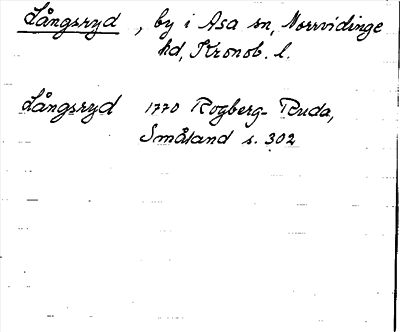 Långsryd, by i Asa sn, Norrvidinge
hd, Kronob. l.
Långsryd 1770 Rogberg-Ruda,
Småland s. 302